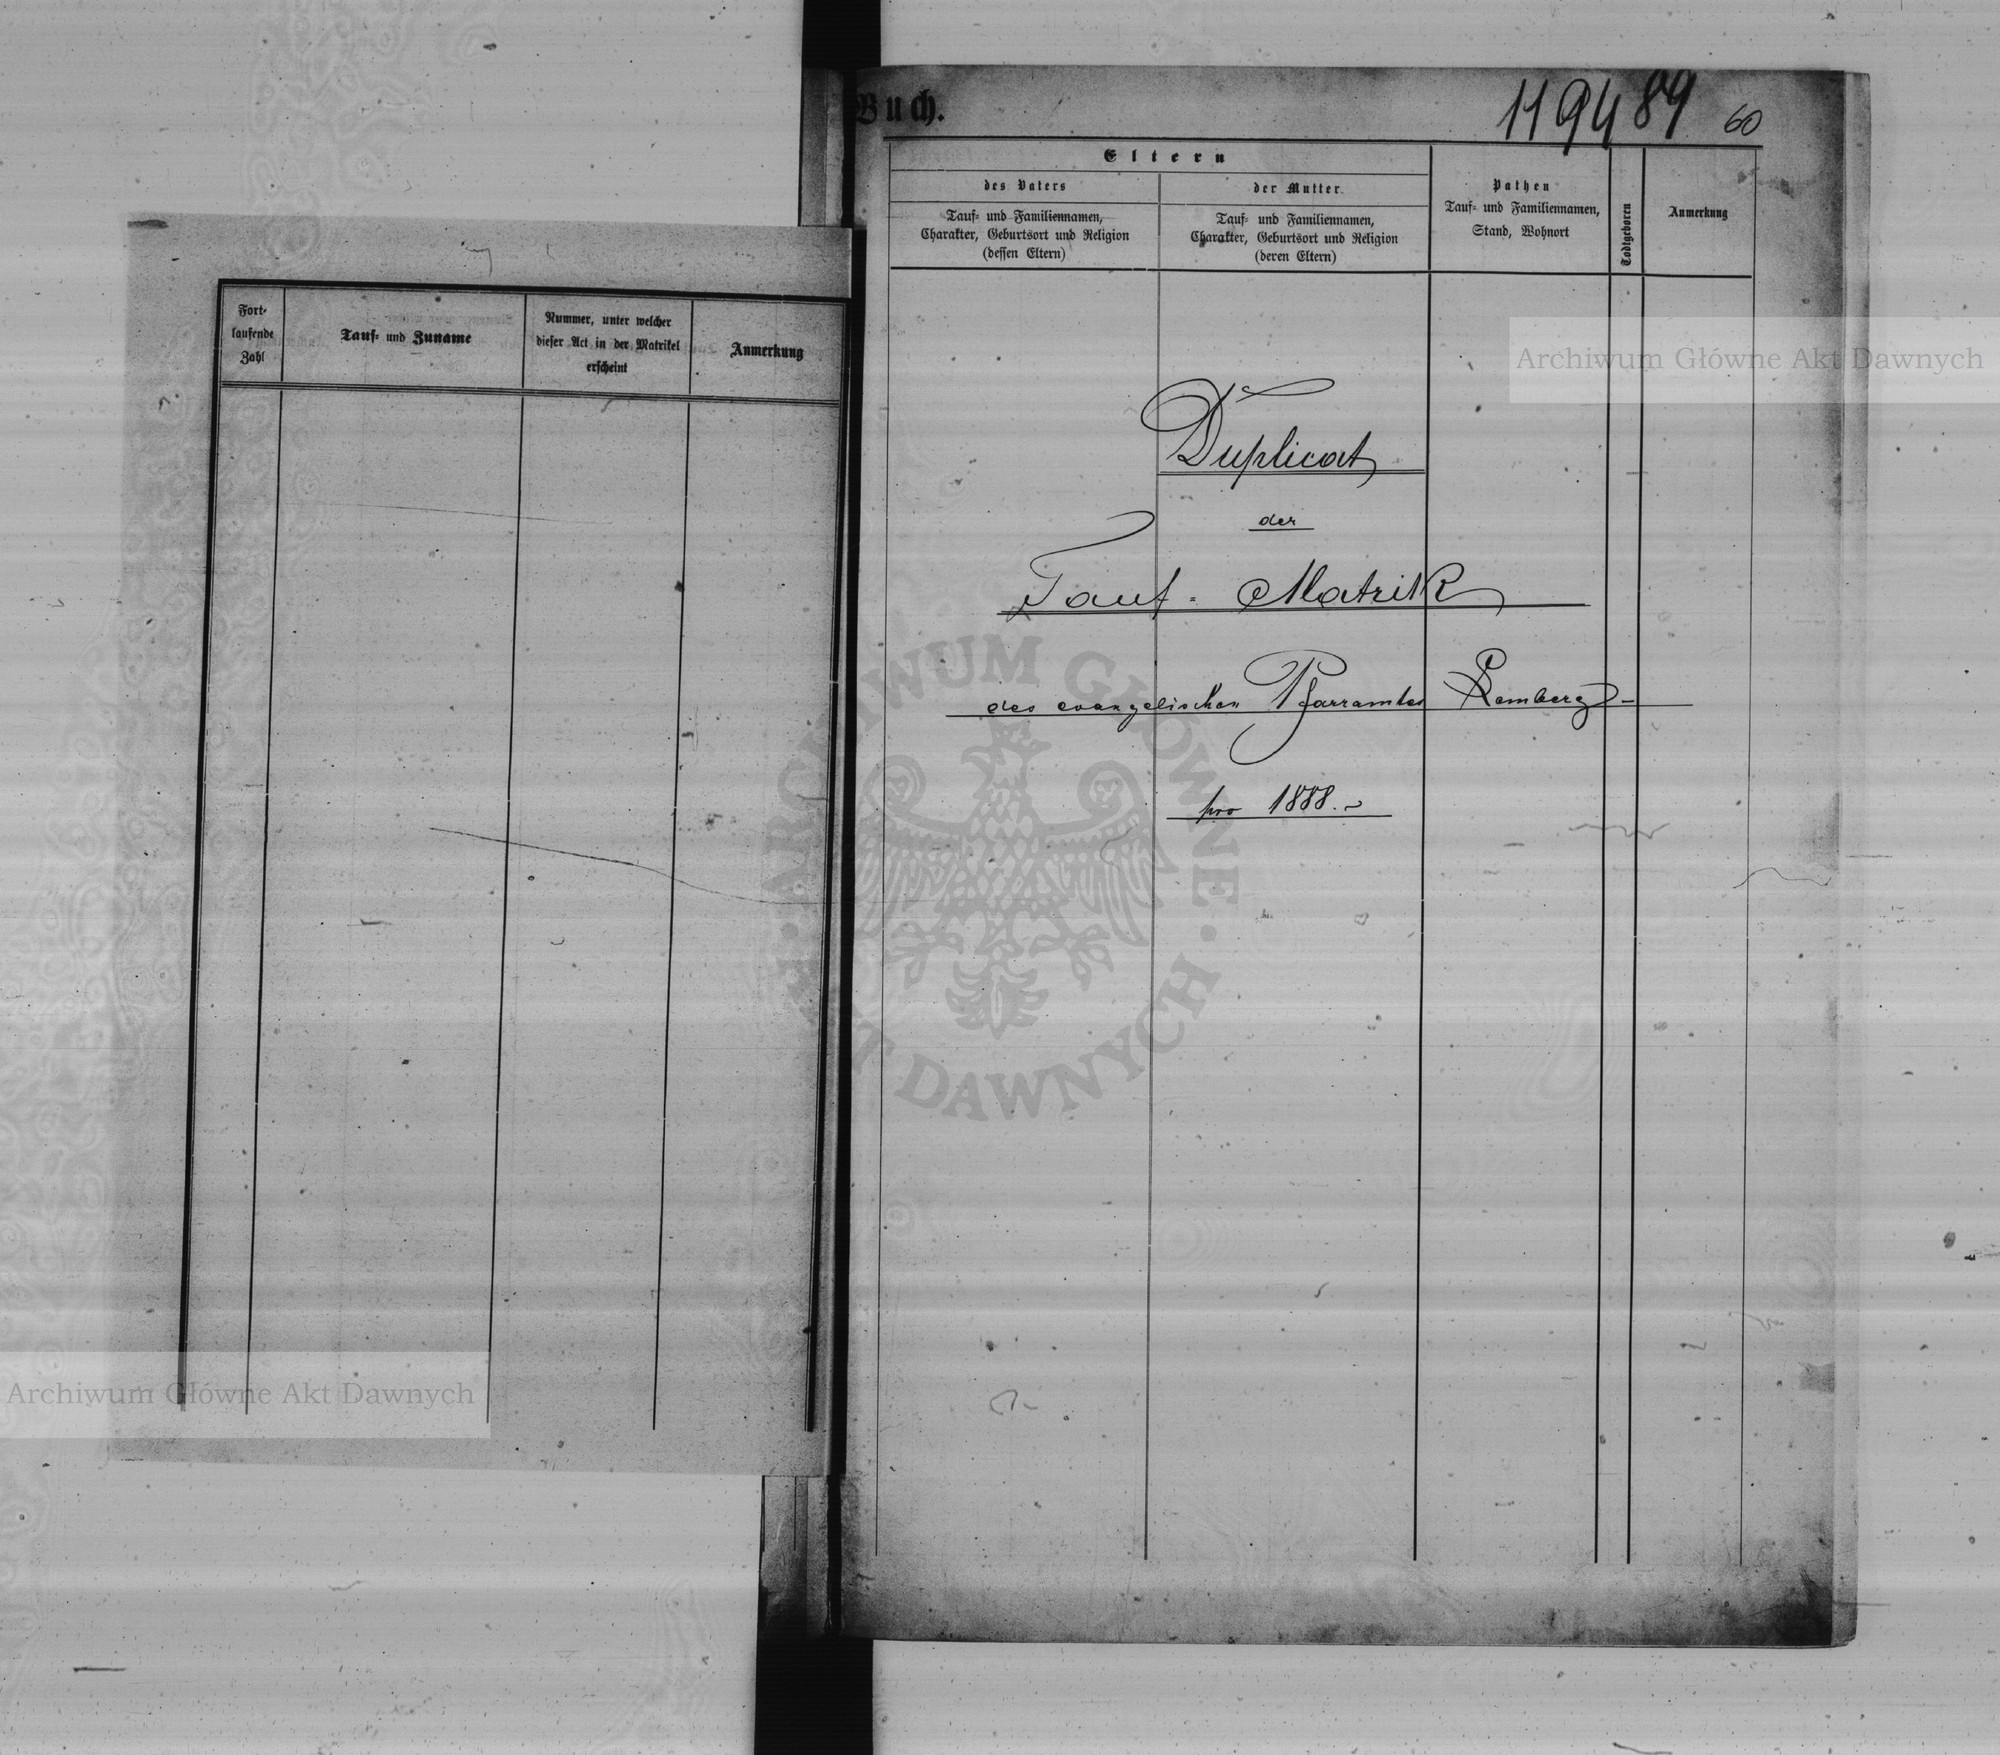 Fort-
laufende
Zahl
Tauf- und Zuname
Nummer, unter welcher
dieser Act in der Matrikel
erscheint
Anmerkung
Buch.
119489 60
Eltern
des Vaters
Tauf- und Familiennamen,
Charakter, Geburtsort und Religion
(dessen Eltern)
der Mutter
Tauf- und Familiennamen,
Charakter, Geburtsort und Religion
(deren Eltern)
Pathen
Tauf- und Familiennamen,
Stand, Wohnort
Todtgeboren
Anmerkung
Duplicat
der
Tauf-Matrik
des evangelischen Pfarramtes Lemberg
pro 1888.
Archiwum Główne Akt Dawnych
ARCHIWUM GŁÓWNE AKT DAWNYCH
Archiwum Główne Akt Dawnych